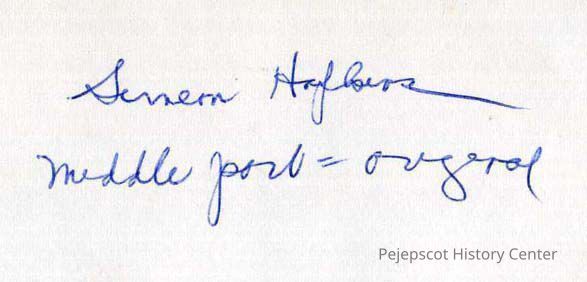 Simeon
Middle part = original
Pejepscot History Center